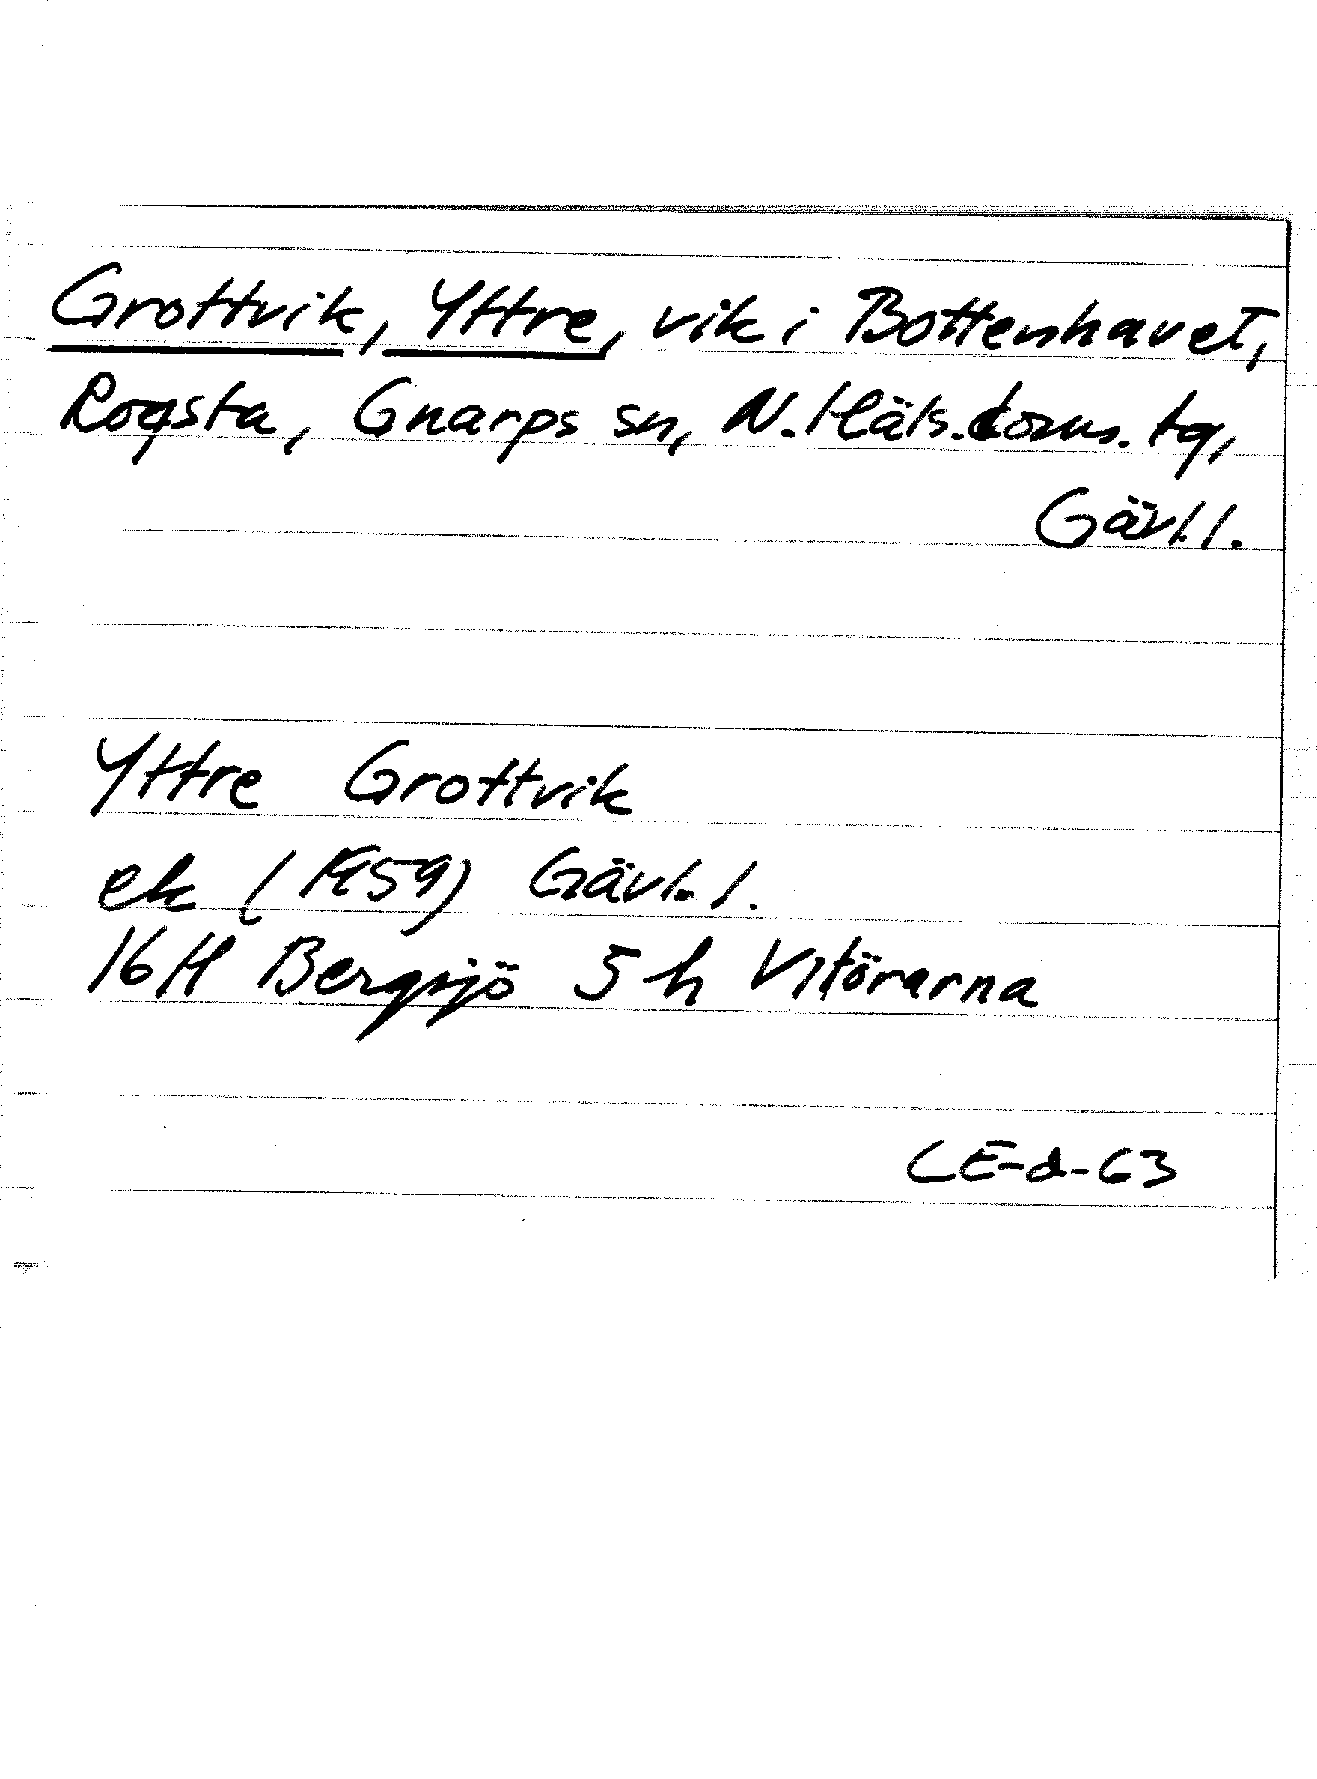 Grottvik, Yttre, vik i Bottenhavet,
Rogsta, Gnarps sn, N. Häls. doms. tg,
Gävl. l.
Yttre Grottvik
ek (1959) Gävl. l.
16H Bergsjö 5 h Vitörarna
CE-d-63